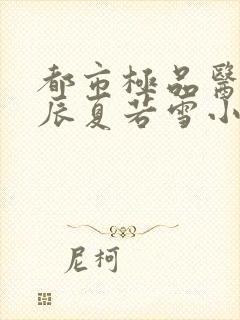 都市極品醫
辰夏若雪小
尼柯